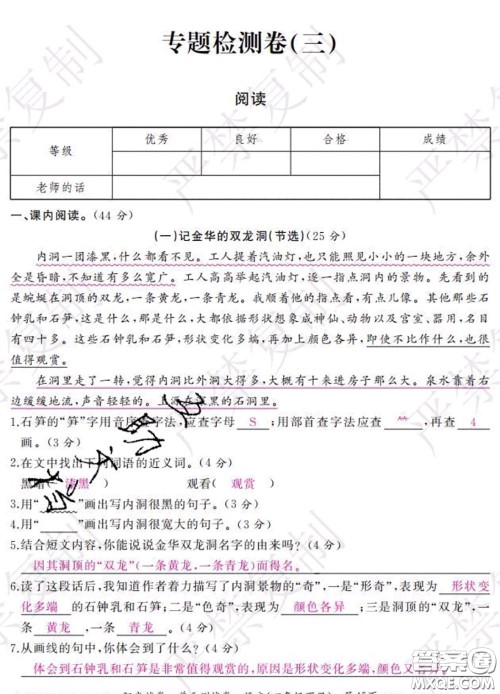 专题检测卷(三)
阅读
等级 优秀 良好 合格 成绩
老师的话
一、课内阅读。(44 分)
(一)记金华的双龙洞(节选)(25 分)
内洞一团漆黑,什么都看不见。工人提着汽油灯,也只能照见小小的一块地方,余外
全是昏暗,不知道有多么宽广。工人高高举起汽油灯,逐一指点洞内的景物。先看到的
是蜿蜒在洞顶的双龙,一条黄龙,一条青龙。我顺着他的指点看,有点儿像。其他那些石
钟乳和石笋,这是什么,那是什么,大都依据形状想象成神仙、动物以及宫室、器用,名目
有四十多。这些石钟乳和石笋,形状变化多端,再加上颜色各异,即使不比作什么,也很
值得观赏。
在洞里走了一转,觉得内洞比外洞大得多,大概有十来进房子那么大。泉水靠着右
边缓缓地流,声音轻轻的。上源在深黑的石洞里。
1.石笋的“笋”字用音序查字法,应查字母 S ;用部首查字法应查 ⺮ ,再查 4
画。(3 分)
2.在文中找出下列词语的近义词。(4 分)
黑暗( 漆黑 ) 观看( 观赏 )
3.用“ ”画出写内洞很黑的句子。(3 分)
4.用“ ”画出写内洞很宽大的句子。(3 分)
5.结合短文内容,你能说说金华双龙洞名字的由来吗?(3 分)
因其洞顶的“双龙”(一条黄龙,一条青龙)而得名。
6.读了这段话后,我知道作者着力描写了内洞景物的“奇”,一是“形奇”,表现为 形状变
化多端 的石钟乳和石笋;二是“色奇”,表现为 颜色各异 ;三是洞顶的“双龙”,一
条 黄龙 ,一条 青龙 。(4 分)
7.从画线的句中,你体会到了什么?(4 分)
体会到石钟乳和石笋是非常值得观赏的,原因是形状变化多端,颜色又
严禁复制
答案圈
MXQE.COM